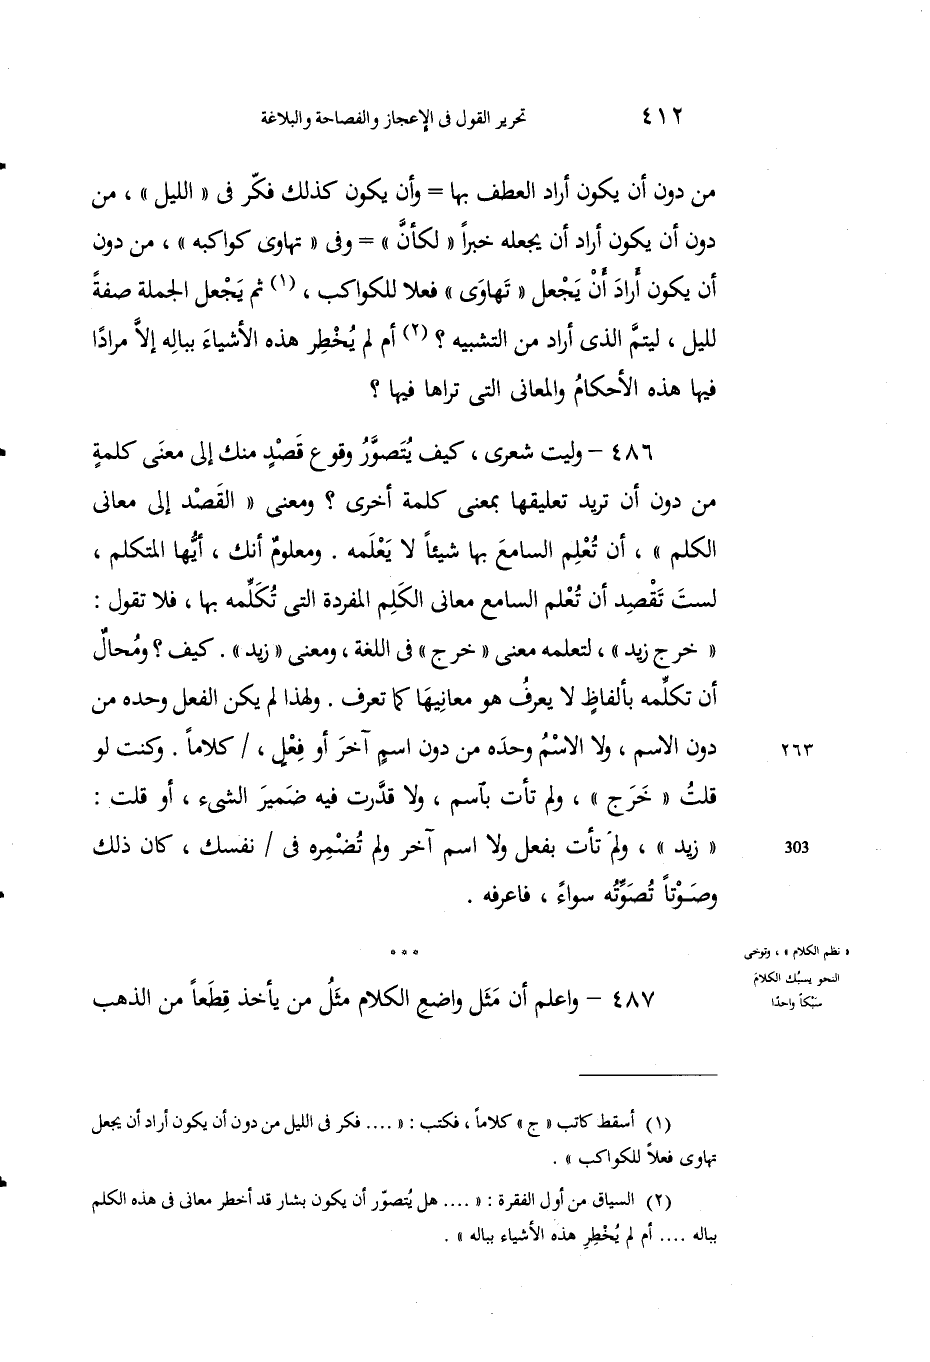 ٤١٢ تحرير القول فى الإعجاز والفصاحة والبلاغة
من دون أن يكون أراد العطف بها = وأن يكون كذلك فكّر فى « الليل » ، من
دون أن يكون أراد أن يجعله خبراً « لكأنَّ » = وفى « تهاوى كواكبه » ، من دون
أن يكون أَرادَ أَنْ يَجْعل « تَهاوَى » فعلا للكواكب ، (١) ثم يَجْعل الجملة صفةً
لليل ، ليتمَّ الذى أراد من التشبيه ؟ (٢) أم لم يُخْطِر هذه الأشياءَ ببالِه إلاَّ مرادًا
فيها هذه الأحكامُ والمعانى التى تراها فيها ؟
٤٨٦ – وليت شعرى ، كيف يُتَصوَّرُ وقوع قَصْدٍ منك إلى معنَى كلمةٍ
من دون أن تريد تعليقها بمعنى كلمة أخرى ؟ ومعنى « القَصْد إلى معانى
الكلم » ، أن تُعْلِم السامعَ بها شيئاً لا يَعْلَمه . ومعلومٌ أنك ، أيُّها المتكلم ،
لستَ تَقْصِد أن تُعْلم السامع معانى الكَلِم المفردة التى تُكَلِّمه بها ، فلا تقول :
« خرج زيد » ، لتعلمه معنى « خرج » فى اللغة ، ومعنى « زيد » . كيف ؟ ومُحالٌ
أن تكلِّمه بألفاظٍ لا يعرفُ هو معانِيهَا كما تعرف . ولهذا لم يكن الفعل وحده من
دون الاسم ، ولا الاسْمُ وحدَه من دون اسمٍ آخرَ أو فِعْلٍ ، / كلاماً . وكنت لو
٢٦٣
قلتُ « خَرَج » ، ولم تأت بآسم ، ولا قدَّرت فيه ضَميرَ الشىء ، أو قلت :
« زيد » ، ولمَ تأت بفعل ولا اسم آخر ولم تُضْمِره فى / نفسك ، كان ذلك
303
وصَوْتاً تُصَوِّتُه سواءً ، فاعرفه .
* * *
« نظم الكلام » ، وتوخى
النحو يسبُك الكلامَ
سَبْكاً واحدًا
٤٨٧ – واعلم أن مَثَل واضعِ الكلام مثَلُ من يأخذ قِطَعاً من الذهب
(١) أسقط كاتب « ج » كلاماً ، فكتب : « .... فكر فى الليل من دون أن يكون أراد أن يجعل
تهاوى فعلاً للكواكب » .
(٢) السياق من أول الفقرة : « .... هل يُتصوّر أن يكون بشار قد أخطر معانى فى هذه الكلم
بباله .... أم لم يُخْطِرِ هذه الأشياء بباله » .